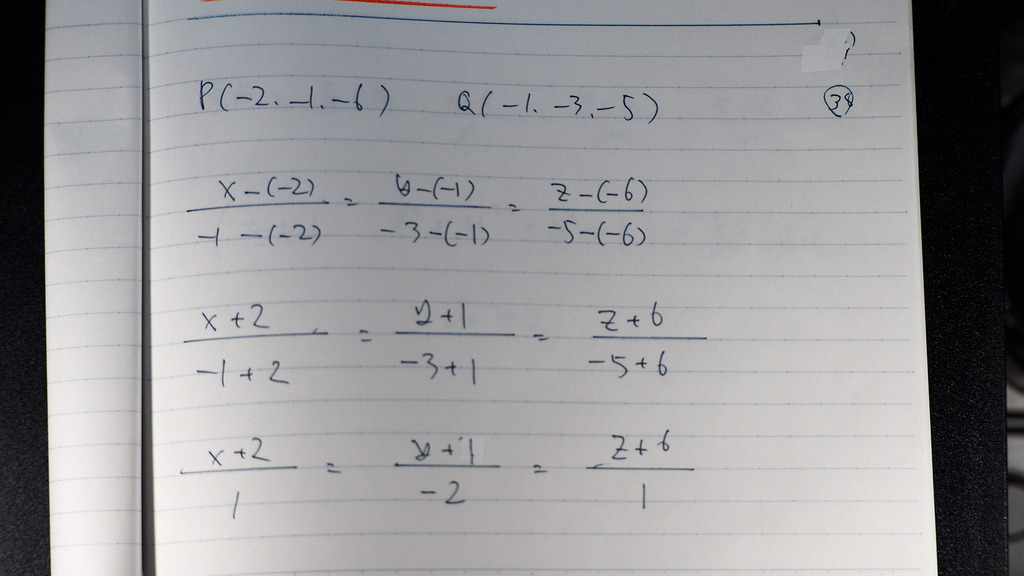 P(-2. -1. -6) Q(-1. -3. -5)
x-(-2)/-1-(-2) = y-(-1)/-3-(-1) = z-(-6)/-5-(-6)
x+2/-1+2 = y+1/-3+1 = z+6/-5+6
x+2/1 = y+1/-2 = z+6/1